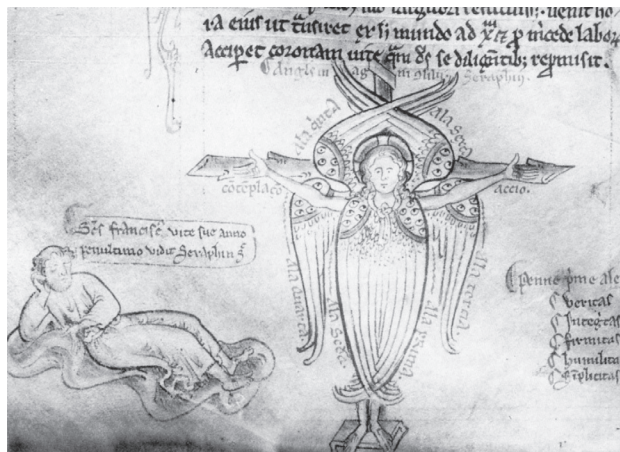 uenit ho
ra eius ut t̃nsiret ex mundo ad p̃ m̃cede labor
Accip̃et coronam uite quã ds̃ se diligẽtib; rep̃misit.
Seraphin.
ala quĩta
ala sexta
cõtẽplacõ
accio.
Sc̃s francisc᷒ uite sue anno
penultimo uidit Seraphin
ala quarta
ala secda
ala prima
ala tercia
Penne p̃me ale
veritas
Integ̃tas
firmitas
humilita
sĩplicitas